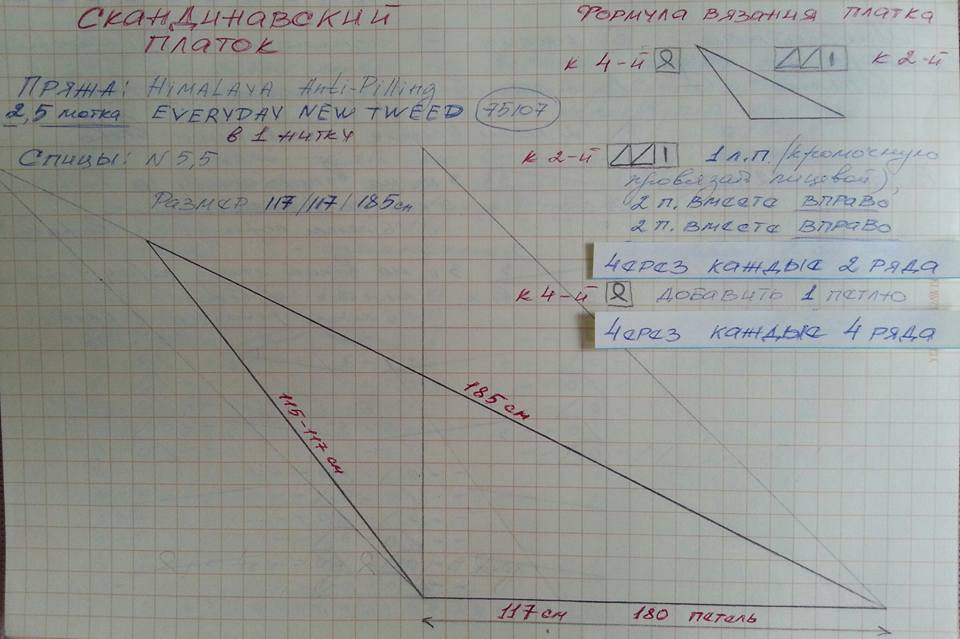 СКАНДИНАВСКИЙ
ПЛАТОК
ПРЯЖА: HIMALAYA Anti-Pilling
2,5 мотка EVERYDAY NEW TWEED 75107
в 1 нитку
Спицы: N 5,5
Размер 117/117/185см
ФОРМУЛА ВЯЗАНИЯ ПЛАТКА
К 4-й
К 2-й
К 2-й 1 л.п. (кромочную
провязат лицевой),
2 п. вместе ВПРАВО
2 п. вместе ВПРАВО
Через каждые 2 ряда
К 4-й ДОБАВИТЬ 1 петлю
Через каждые 4 ряда
185 см
115-117 см
117 см 180 петель